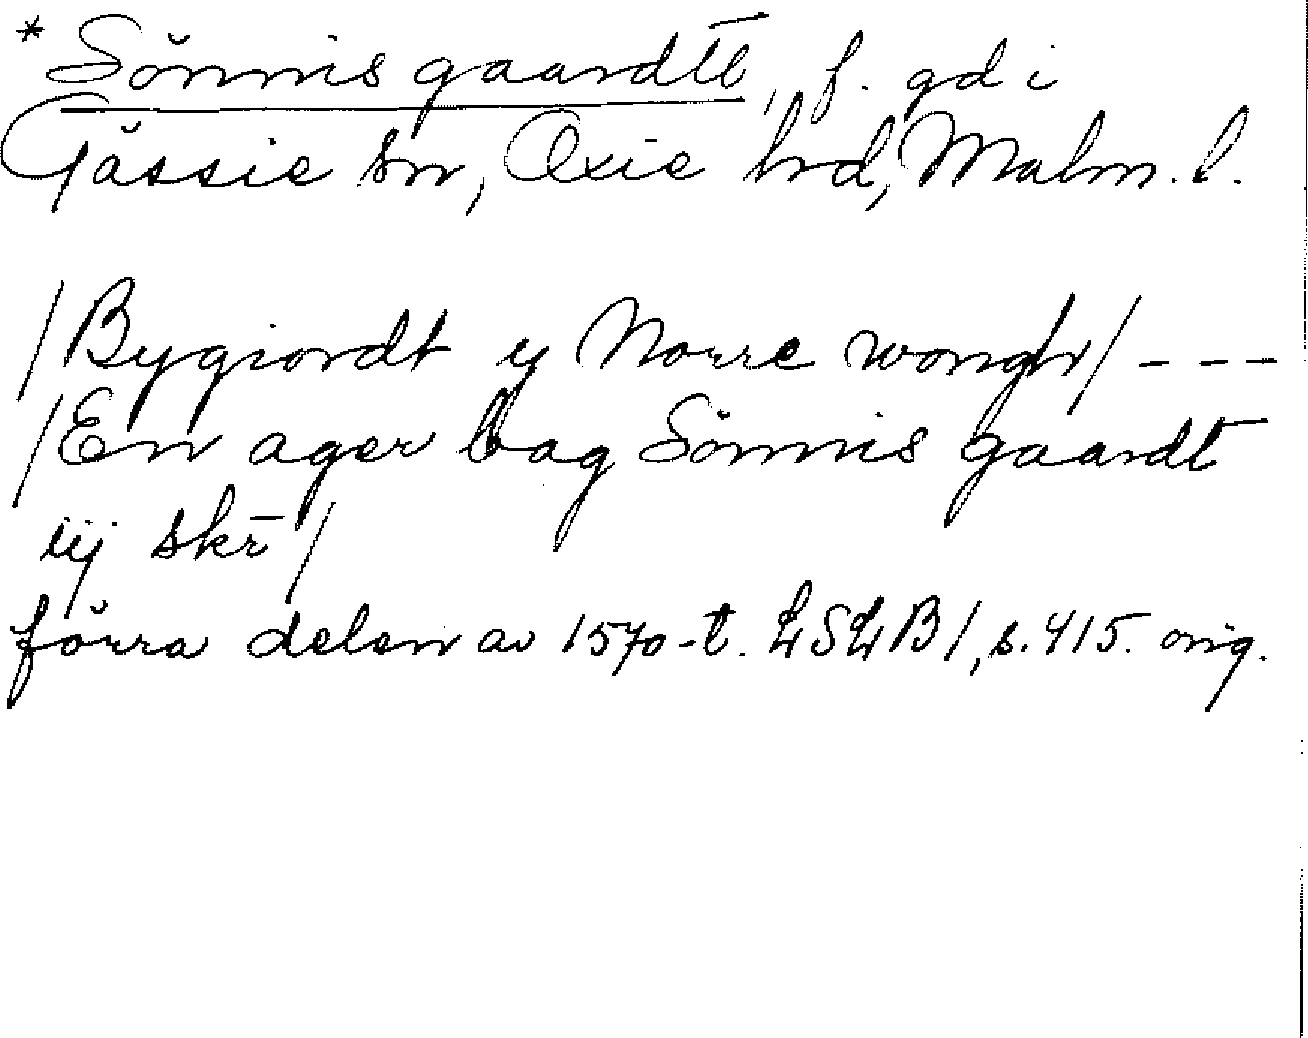 * Sönnis gaardtt, f. gd i
Gässie sn, Oxie hrd, Malm. l.
/Bygiordt y Norre wongh/ - - -
/En ager bag Sönnis gaardt
iij skr̄/
förra delen av 1570-t. LSLB1, s. 415. orig.